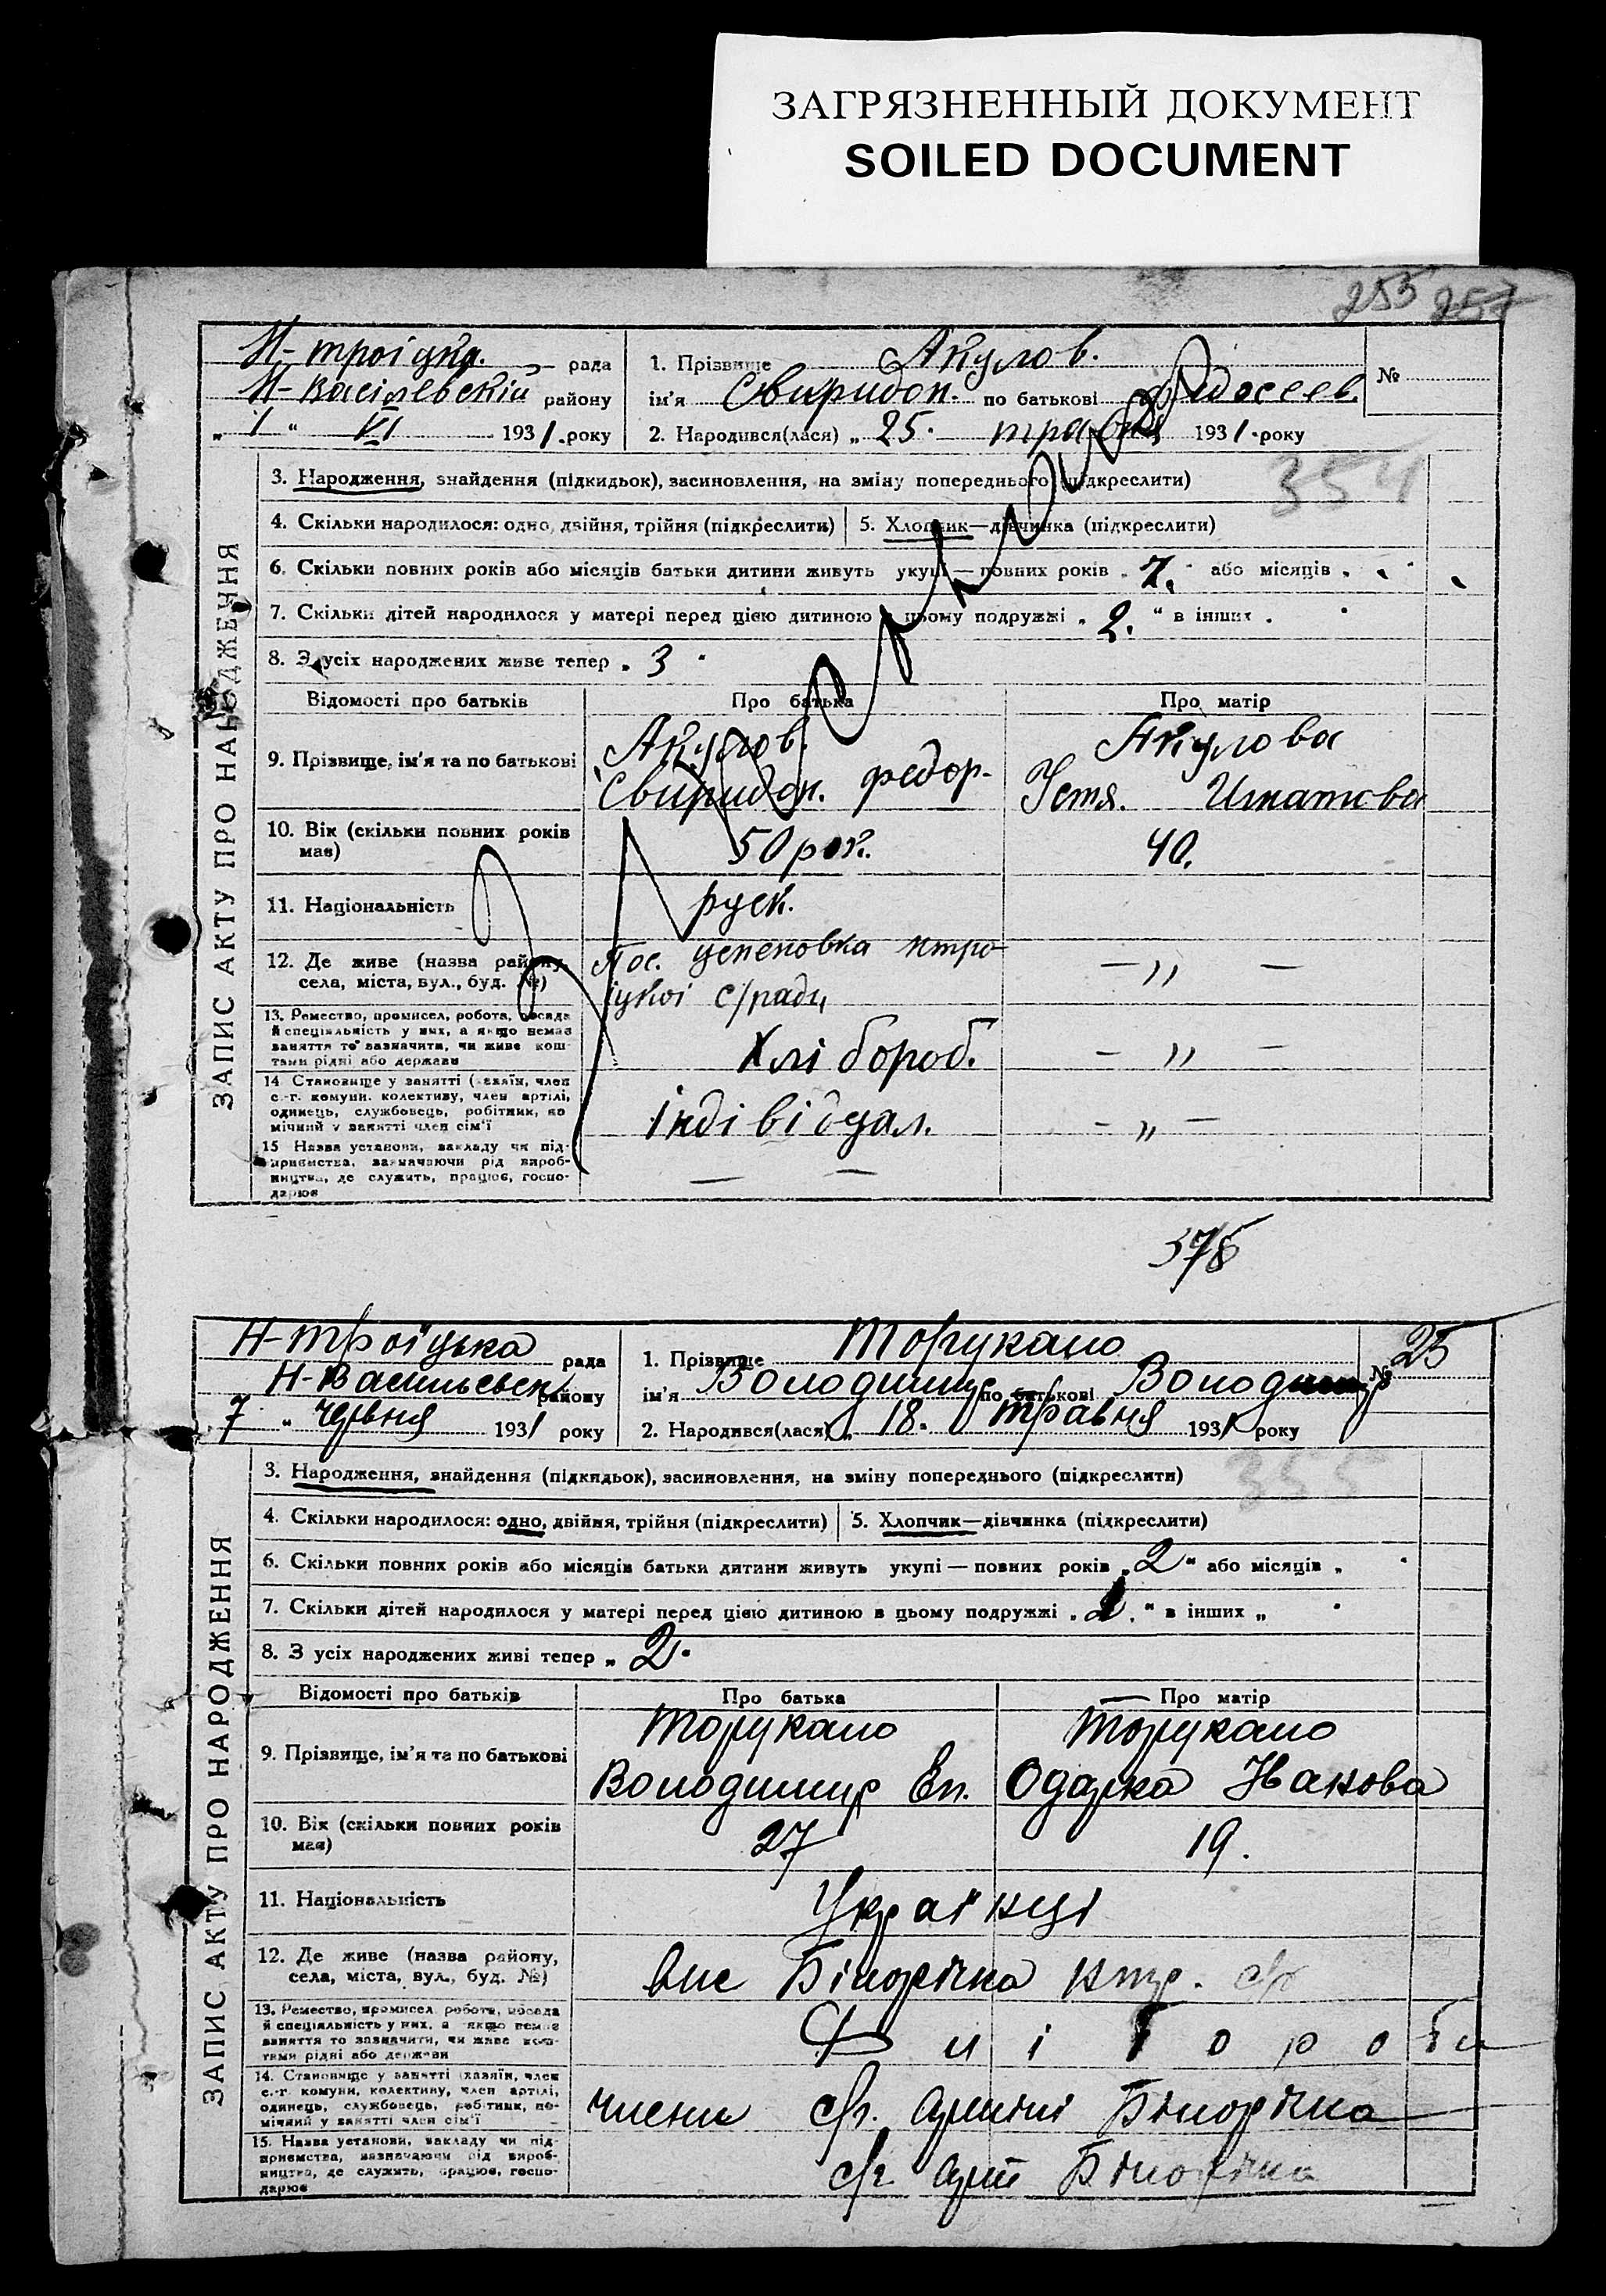 ЗАГРЯЗНЕННЫЙ ДОКУМЕНТ
SOILED DOCUMENT
253 257
Н-троіцка. рада
Н-васілевскій району
„ 1 “ VI 1931. року
1. Прізвище Акулов.
ім'я Свиридон. по батькові
2. Народився(лася) „ 25. травня 1931. року
№
354
ЗАПИС АКТУ ПРО НАРОДЖЕННЯ
3. Народження, знайдення (підкидьок), засиновлення, на зміну попереднього (підкреслити)
4. Скільки народилося: одно, двійня, трійня (підкреслити) 5. Хлопчик—дівчинка (підкреслити)
6. Скільки повних років або місяців батьки дитини живуть укупі — повних років „ 7. “ або місяців „
7. Скільки дітей народилося у матері перед цією дитиною в цьому подружжі „ 2. “ в інших „
8. З усіх народжених живе тепер „ 3 “
Відомості про батьків Про батька Про матір
9. Прізвище, ім'я та по батькові
Акулов. Акулова
Свиридон. федор- Устя. Игнатова
10. Вік (скільки повних років має) 50 рок. 40.
11. Національність руск.
12. Де живе (назва району, села, міста, вул., буд. №)
Пос. нтро-
іцкоі с/ради — „ —
13. Ремество, промисел, робота, посада й спеціяльність у них, а якщо немає заняття то зазначити, чи живе коштами рідні або держави
Хлібороб. — „ —
14. Становище у занятті (хазяїн, член с.-г. комуни, колективу, член артілі, одинець, службовець, робітник, помічний у занятті член сім'ї
індівідуал. — „ —
15. Назва установи, закладу чи підприємства, зазначаючи рід виробництва, де служить, працює, господарює
— —
378
Н-троїцька рада
Н-Васильевськ району
7 „ червня 1931 року
1. Прізвище Торукало
ім'я Володимир по батькові Володимир
2. Народився(лася) „ 18. травня 1931 року
№ 25
355
ЗАПИС АКТУ ПРО НАРОДЖЕННЯ
3. Народження, знайдення (підкидьок), засиновлення, на зміну попереднього (підкреслити)
4. Скільки народилося: одно, двійня, трійня (підкреслити) 5. Хлопчик—дівчинка (підкреслити)
6. Скільки повних років або місяців батьки дитини живуть укупі — повних років „ 2 “ або місяців „
7. Скільки дітей народилося у матері перед цією дитиною в цьому подружжі „ 1. “ в інших „
8. З усіх народжених живі тепер „ 2.
Відомості про батьків Про батька Про матір
9. Прізвище, ім'я та по батькові
Торукало Торукало
Володимир Еп. Одарка Івакова
10. Вік (скільки повних років має) 27 19.
11. Національність Українці
12. Де живе (назва району, села, міста, вул., буд. №) вис Білорічка нтр. с/р
13. Ремество, промисел, робота, посада й спеціяльність у них, а якщо немає заняття то зазначити, чи живе коштами рідні або держави
Хліборобы
14. Становище у занятті (хазяїн, член с.-г. комуни, колективу, член артілі, одинець, службовець, робітник, помічний у занятті член сім'ї
члени с/г. артілі Білорічка
15. Назва установи, закладу чи підприємства, зазначаючи рід виробництва, де служить, працює, господарює
с/г арт Білорічка